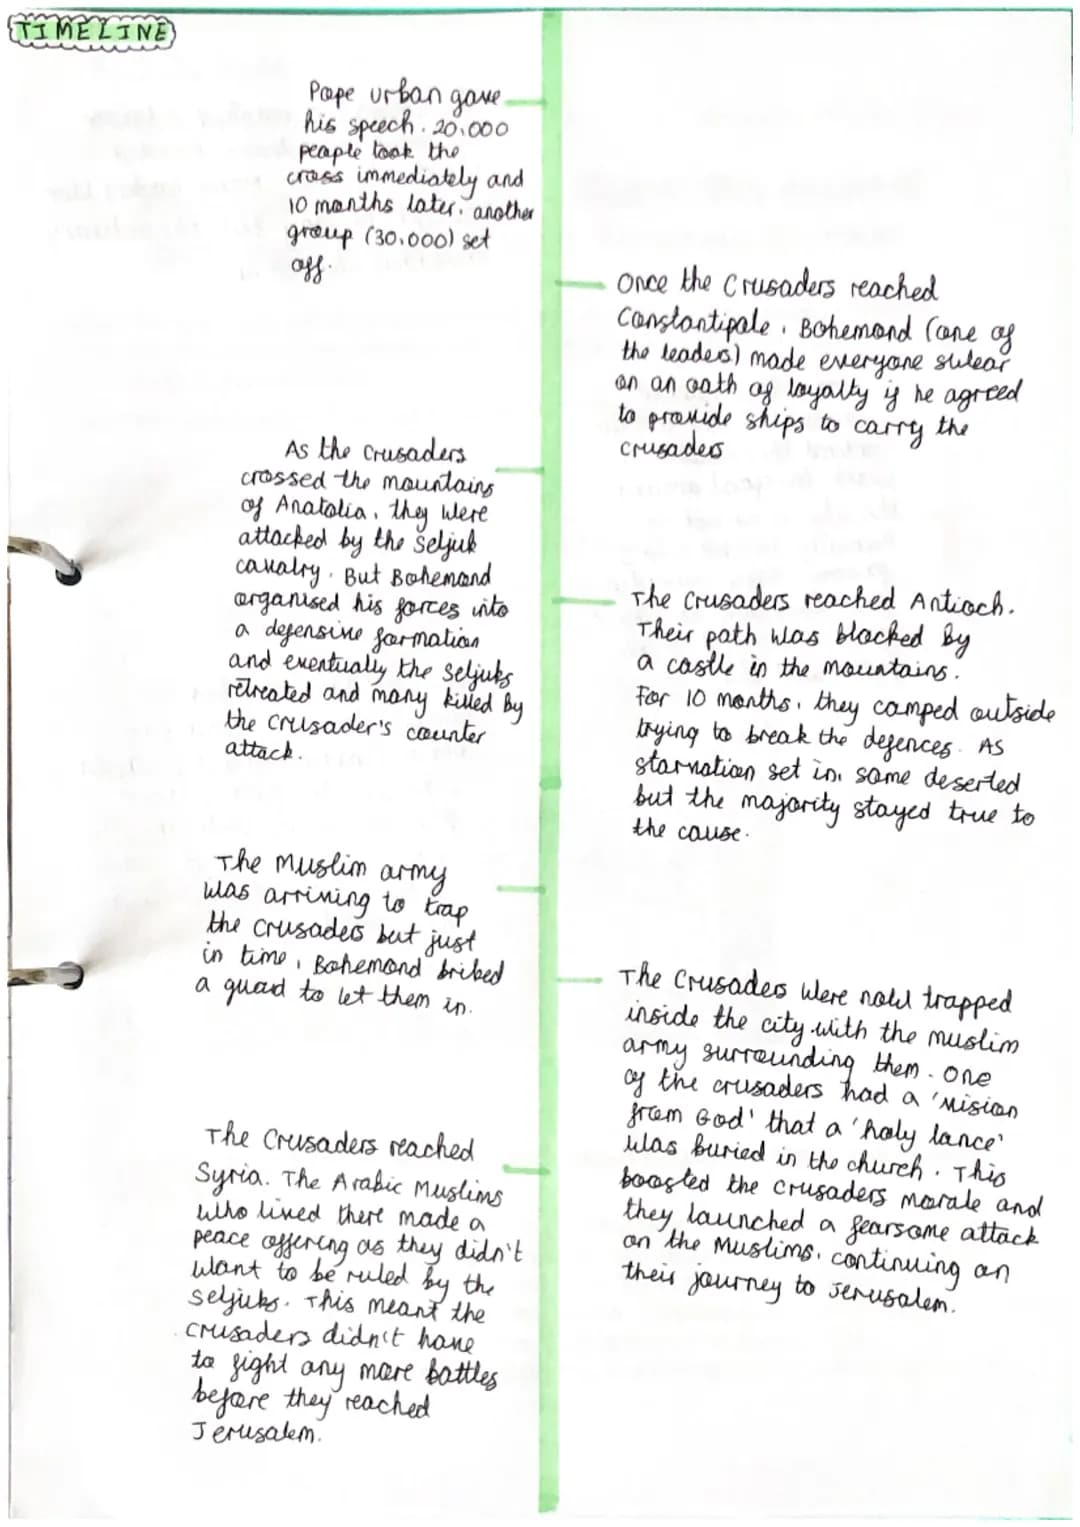 TIMELINE
Pope urban gave
his speech. 20,000
people took the
cross immediately and
10 months later, another
group (30,000) set
off.
Once the Crusaders reached
Constantipole, Bohemond (one of
the leaders) made everyone swear
on an oath of loyalty if he agreed
to provide ships to carry the
crusaders
As the Crusaders
crossed the mountains
of Anatolia, they were
attacked by the Seljuk
cavalry. But Bohemond
organised his forces into
a defensive formation
and eventually the Seljuks
retreated and many killed by
the crusader's counter
attack.
The Crusaders reached Antioch.
Their path was blocked by
a castle in the mountains.
For 10 months, they camped outside
trying to break the defences. As
starvation set in, some deserted
but the majority stayed true to
the cause.
The Muslim army
was arriving to trap
the crusaders but just
in time, Bohemond bribed
a guard to let them in.
The Crusaders were now trapped
inside the city with the muslim
army surrounding them. One
of the crusaders had a 'vision
from God' that a 'holy lance'
was buried in the church. This
boosted the crusaders morale and
they launched a fearsome attack
on the Muslims, continuing on
their journey to Jerusalem.
The Crusaders reached
Syria. The Arabic Muslims
who lived there made a
peace offering as they didn't
want to be ruled by the
Seljuks. This meant the
crusaders didn't have
to fight any more battles
before they reached
Jerusalem.